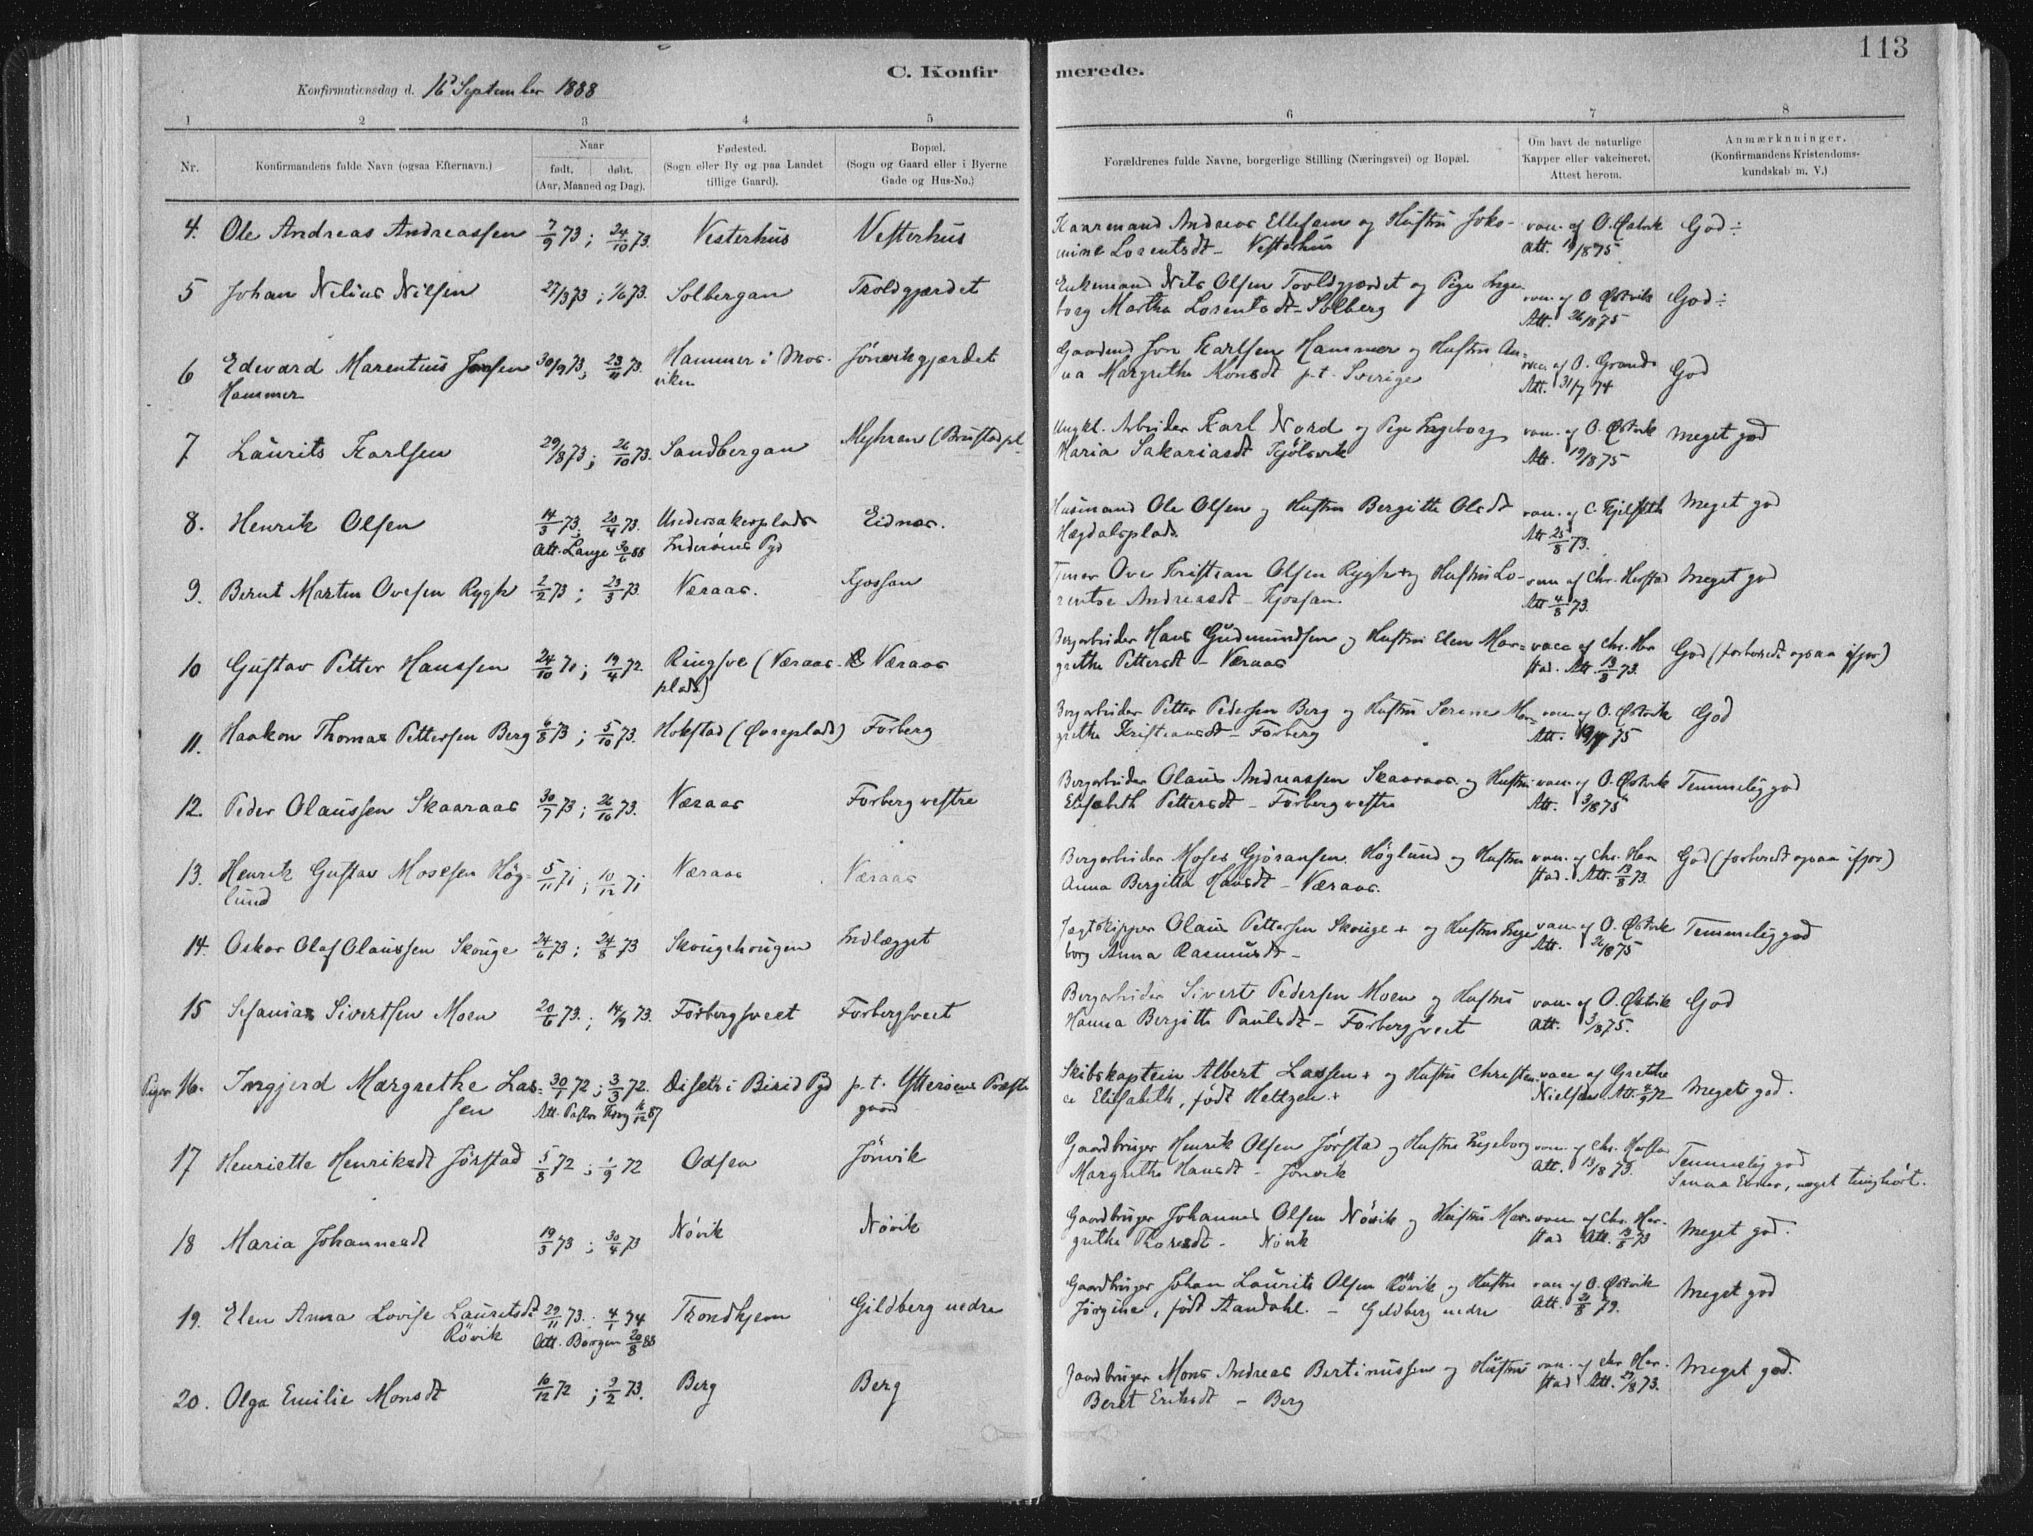 113
C. Konfir
merede.
Konfirmationsdag d. 16 September 1888
1 2 3 4 5 6 7 8
Nr.
Konfirmandens fulde Navn (ogsaa Efternavn.)
Naar
født. døbt.
(Aar, Maaned og Dag).
Fødested.
(Sogn eller By og paa Landet
tillige Gaard).
Bopæl.
(Sogn og Gaard eller i Byerne
Gade og Hus-No.)
Forældrenes fulde Navne, borgerlige Stilling (Næringsvei) og Bopæl.
Om havt de naturlige
Kapper eller vakcineret.
Attest herom.
Anmærkninger.
(Konfirmandens Kristendoms-
kundskab m. V.)
4. Ole Andreas Andreassen 7/9 73; 24/10 73. Vesterhus Vesterhus Kaarmand Andreas Ellefsen og Hustru Joko- vac. af O. Østvik God ÷
mine Lorentsdt - Vesterhus Att. /8 75
5 Johan Nelius Nilsen 27/3 73; 1/6 73. Solbergan Troldgjærdet Enkemand Nils Olsen Troldgjærdet og Pige Inge- vac. af O Østvik God ÷
borg Martha Lorentsdt - Solberg Att. 26/8 75
6 Edevard Marentius Jonsen 30/9 73; 23/11 73. Hammer i Mos- Jönvikgjærdet Gaardmd Jon Karlsen Hammer og Hustru An- vac. af O. Grande God
Hammer viken na Margrethe Monsdt p.t. Sverige Att. 31/7 74
7 Laurits Karlsen 29/8 73; 26/10 73. Sandbergan Myhran (Brustadpl. Ungkl. Arbeider Karl Nord og Pige Ingeborg vac. af O. Østvik Meget god
Maria Sakariasdt Kjölsvik Att. 19/8 75
8. Henrik Olsen 14/3 73; 20/4 73. Undersakerplads Eidnes. Husmand Ole Olsen og Hustru Bergitte Olsdt vac. af C. Kjelstth Meget god
Att. Lange 30/6 88 Inderöens Pgd Hægdalsplads. Att 25/8 73.
9. Bernt Martin Ovesen Rygh 2/2 73; 23/3 73. Næraas. Kjossan Ove Kristian Olsen Rygh + og Hustru Lo- vac af Chr. Herstad Meget god
rentse Andreasdt - Kjossan. Att 4/8 73.
10 Gustav Petter Hanssen 24/10 70; 19/4 72. Ringsve (Næraas- Næraas Bergarbeider Hans Gudmundsen og Hustru Elen Mar- vacc af Chr. Her God (forberedt ogsaa ifjor)
plads) grethe Pettersdt - Næraas stad. Att. 13/8 73.
11. Haakon Thomas Pettersen Berg 6/8 73; 5/10 73. Hokstad (Øvreplads) Forberg Bergarbeider Petter Pedersen Berg og Hustru Serine Mar- vac. af O. Østvik God
grethe Kristiansdt - Forberg Att. 75
12. Peder Olaussen Skaaraas 30/7 73; 26/10 73. Næraas Forberg vestre Bergarbeider Olaus Andreassen Skaaraas og Hustru vac. af O. Østvik Temmelig god
Elisabeth Pettersdt - Forberg vestre Att. 3/8 75
13. Henrik Gustav Mosesen Hög- 5/11 71; 10/12 71 Næraas Næraas Bergarbeider Moses Gjöransen Höglund og Hustru vac. af Chr. Her God (forberedt ogsaa ifjor)
lund Anna Bergitta Hansdt - Næraas. stad. Att. 13/8 73.
14. Oskar Olaf Olaussen Skouge 24/6 73; 24/8 73 Skougehougen Indlægget Jagtskipper Olaus Pettersen Skouge + og Hustru Inge vac. af O. Østvik Temmelig god
borg Anna Rasmusdt - Att. 26/8 75
15 Sefanias Sivertsen Moen 20/6 73; 14/9 73. Forbergsveet Forbergsveet Bergarbeider Sivert Pedersen Moen og Hustru vac. af O. Østvik God
Hanna Bergitte Paulsdt - Forbergsveet Att. 3/8 75.
Piger 16. Ingjerd Margrethe Las- 30/1 72; 3/3 72. Diseth i Birid Pgd p.t. Ytterøens Præste Skibskaptein Albert Lassen + og Hustru Christen- vacc af Grethe Meget god.
sen Att. Pastor 16/12 87 gaard e Elisabeth, født Heltzen + Nielsen Att. 4/9 72
17 Henriette Henriksdt Jörstad 5/8 72; 1/9 72 Odsen Jönvik Gaardbruger Henrik Olsen Jörstad og Hustru Ingeborg vac. af Chr. Herstad Temmelig god
Margrethe Hansdt - Jönvik Att. 13/8 73. Smaa Evner, noget tunghört.
18 Maria Johannesdt 19/3 73; 30/4 73 Növik Növik Gaardbruger Johannes Olsen Növik og Hustru Mar- vac. af Chr. Her- Meget god.
grethe Thoresdt - Növik stad Att. 13/8 73
19. Elen Anna Lovise Lauritsdt 29/11 73; 4/1 74 Trondhjem Gildberg nedre Gaardbruger Johan Laurits Olsen Rövik og Hustru vac af O. Østvik Meget god
Rövik Att. Borgen 20/8 88 Jörgine, født Aandahl. - Gildberg nedre Att. 21/8 79.
20. Olga Emilie Monsdt 10/12 72; 9/2 73. Berg Berg Gaardbruger Mons Andreas Bertinussen og Hustru vac. af Chr Her- Meget god.
Beret Eriksdt - Berg stad Att. 27/8 73.